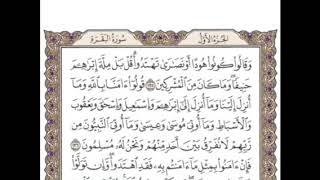 الجزء الأول سورة البقرة
وَقَالُوا كُونُوا هُودًا أَوْ نَصَارَىٰ تَهْتَدُوا قُلْ بَلْ مِلَّةَ إِبْرَاهِيمَ
حَنِيفًا وَمَا كَانَ مِنَ الْمُشْرِكِينَ ۝ قُولُوا آمَنَّا بِاللَّهِ وَمَا
أُنزِلَ إِلَيْنَا وَمَا أُنزِلَ إِلَىٰ إِبْرَاهِيمَ وَإِسْمَاعِيلَ وَإِسْحَاقَ وَيَعْقُوبَ
وَالْأَسْبَاطِ وَمَا أُوتِيَ مُوسَىٰ وَعِيسَىٰ وَمَا أُوتِيَ النَّبِيُّونَ مِن
رَّبِّهِمْ لَا نُفَرِّقُ بَيْنَ أَحَدٍ مِّنْهُمْ وَنَحْنُ لَهُ مُسْلِمُونَ ۝
فَإِنْ آمَنُوا بِمِثْلِ مَا آمَنتُم بِهِ فَقَدِ اهْتَدَوا وَّإِن تَوَلَّوْا